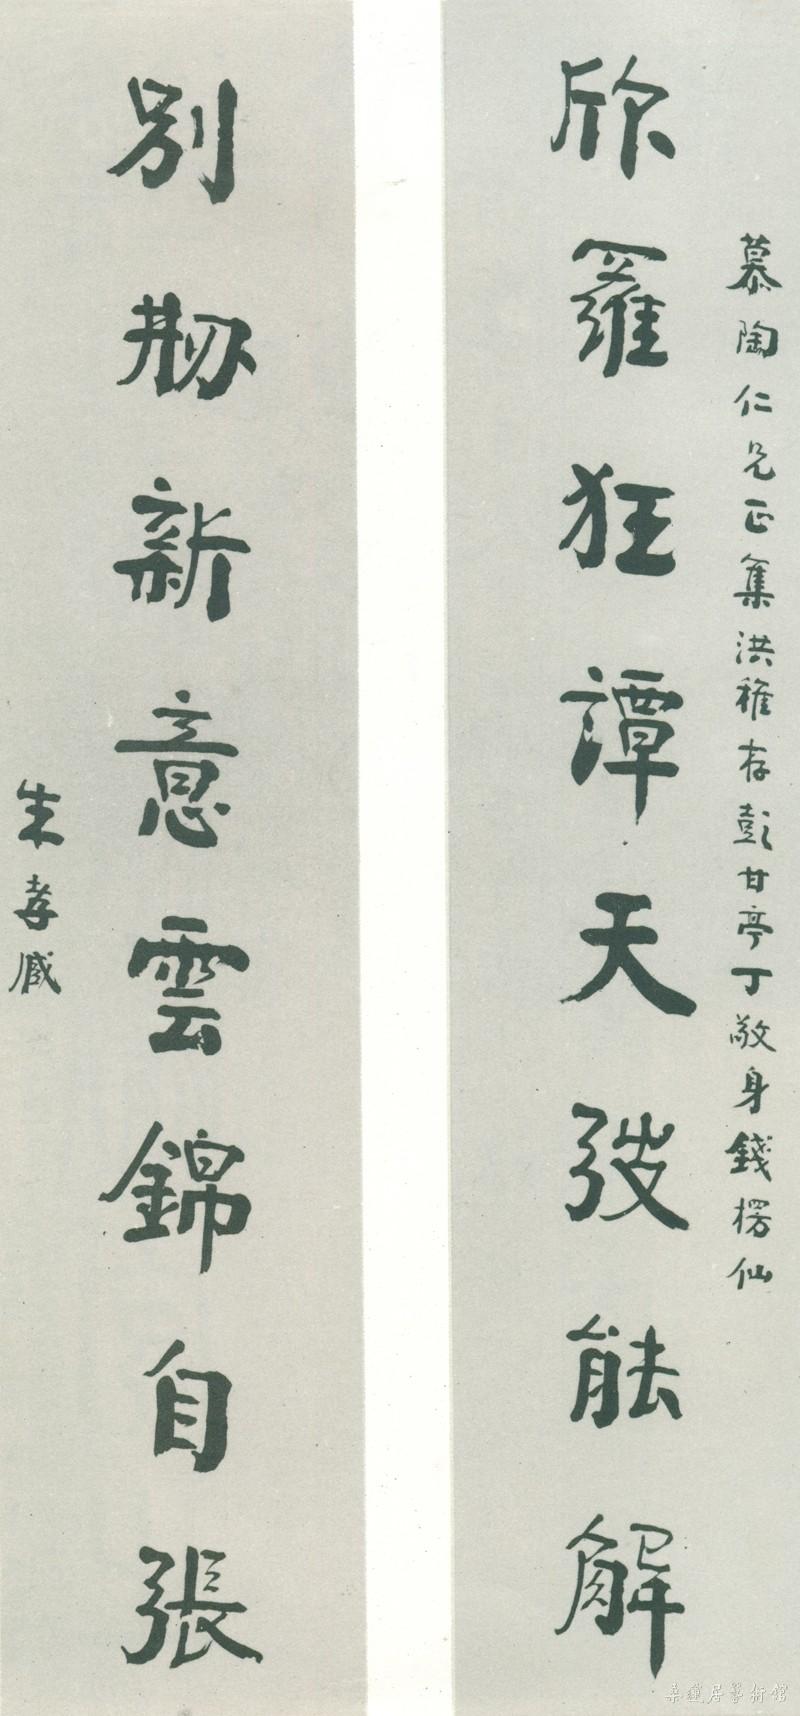 慕陶仁兄正集洪稚存彭甘亭丁敬身錢楞仙
欣羅狂譚天弢能解
别刱新意雲錦自張
朱孝臧
桑蓮居藝術館